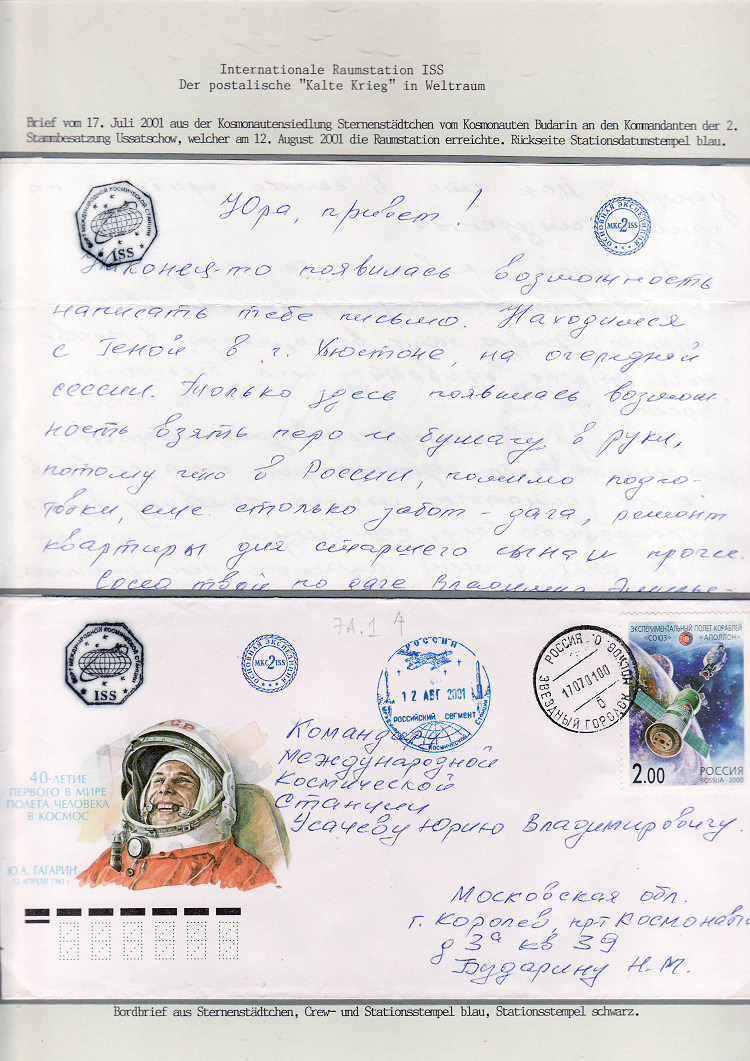 Internationale Raumstation ISS
Der postalische "Kalte Krieg" in Weltraum
Brief vom 17. Juli 2001 aus der Kosmonautensiedlung Sternenstädtchen vom Kosmonauten Budarin an den Kommandanten der 2.
Stammbesatzung Ussatschow, welcher am 12. August 2001 die Raumstation erreichte. Rückseite Stationsdatumstempel blau.
БОРТ МЕЖДУНАРОДНОЙ КОСМИЧЕСКОЙ СТАНЦИИ
ISS
Юра, привет!
ОСНОВНАЯ ЭКСПЕДИЦИЯ
МКС 2 ISS
Наконец-то появилась возможность
написать тебе письмо. Находимся
с Геной в г. Хьюстоне, на очередной
сессии. Только здесь появилась возмож
ность взять перо и бумагу в руки,
потому что в России, помимо подго-
товки, еще столько забот - дача, ремонт
квартиры для старшего сына и проч.
твой по даче Владимир
7A.1
БОРТ МЕЖДУНАРОДНОЙ КОСМИЧЕСКОЙ СТАНЦИИ
ISS
ОСНОВНАЯ ЭКСПЕДИЦИЯ
МКС 2 ISS
РОССИЯ
12 АВГ 2001
российский сегмент
Международной Космической Станции
РОССИЯ
17070100
б
ЗВЕЗДНЫЙ ГОРОДОК
ЭКСПЕРИМЕНТАЛЬНЫЙ ПОЛЕТ КОРАБЛЕЙ
«СОЮЗ» «АПОЛЛОН»
2.00
РОССИЯ
ROSSIJA · 2000
СССР
40-ЛЕТИЕ
ПЕРВОГО В МИРЕ
ПОЛЕТА ЧЕЛОВЕКА
В КОСМОС
Ю.А. ГАГАРИН
12 АПРЕЛЯ 1961 г.
Командиру
Международной
Космической
Станции
Усачеву Юрию Владимировичу.
Московская обл.
г. Королев, пр-т Космонавтов
д 3а кв 39
Бударину Н.М.
Bordbrief aus Sternenstädtchen, Crew- und Stationsstempel blau, Stationsstempel schwarz.